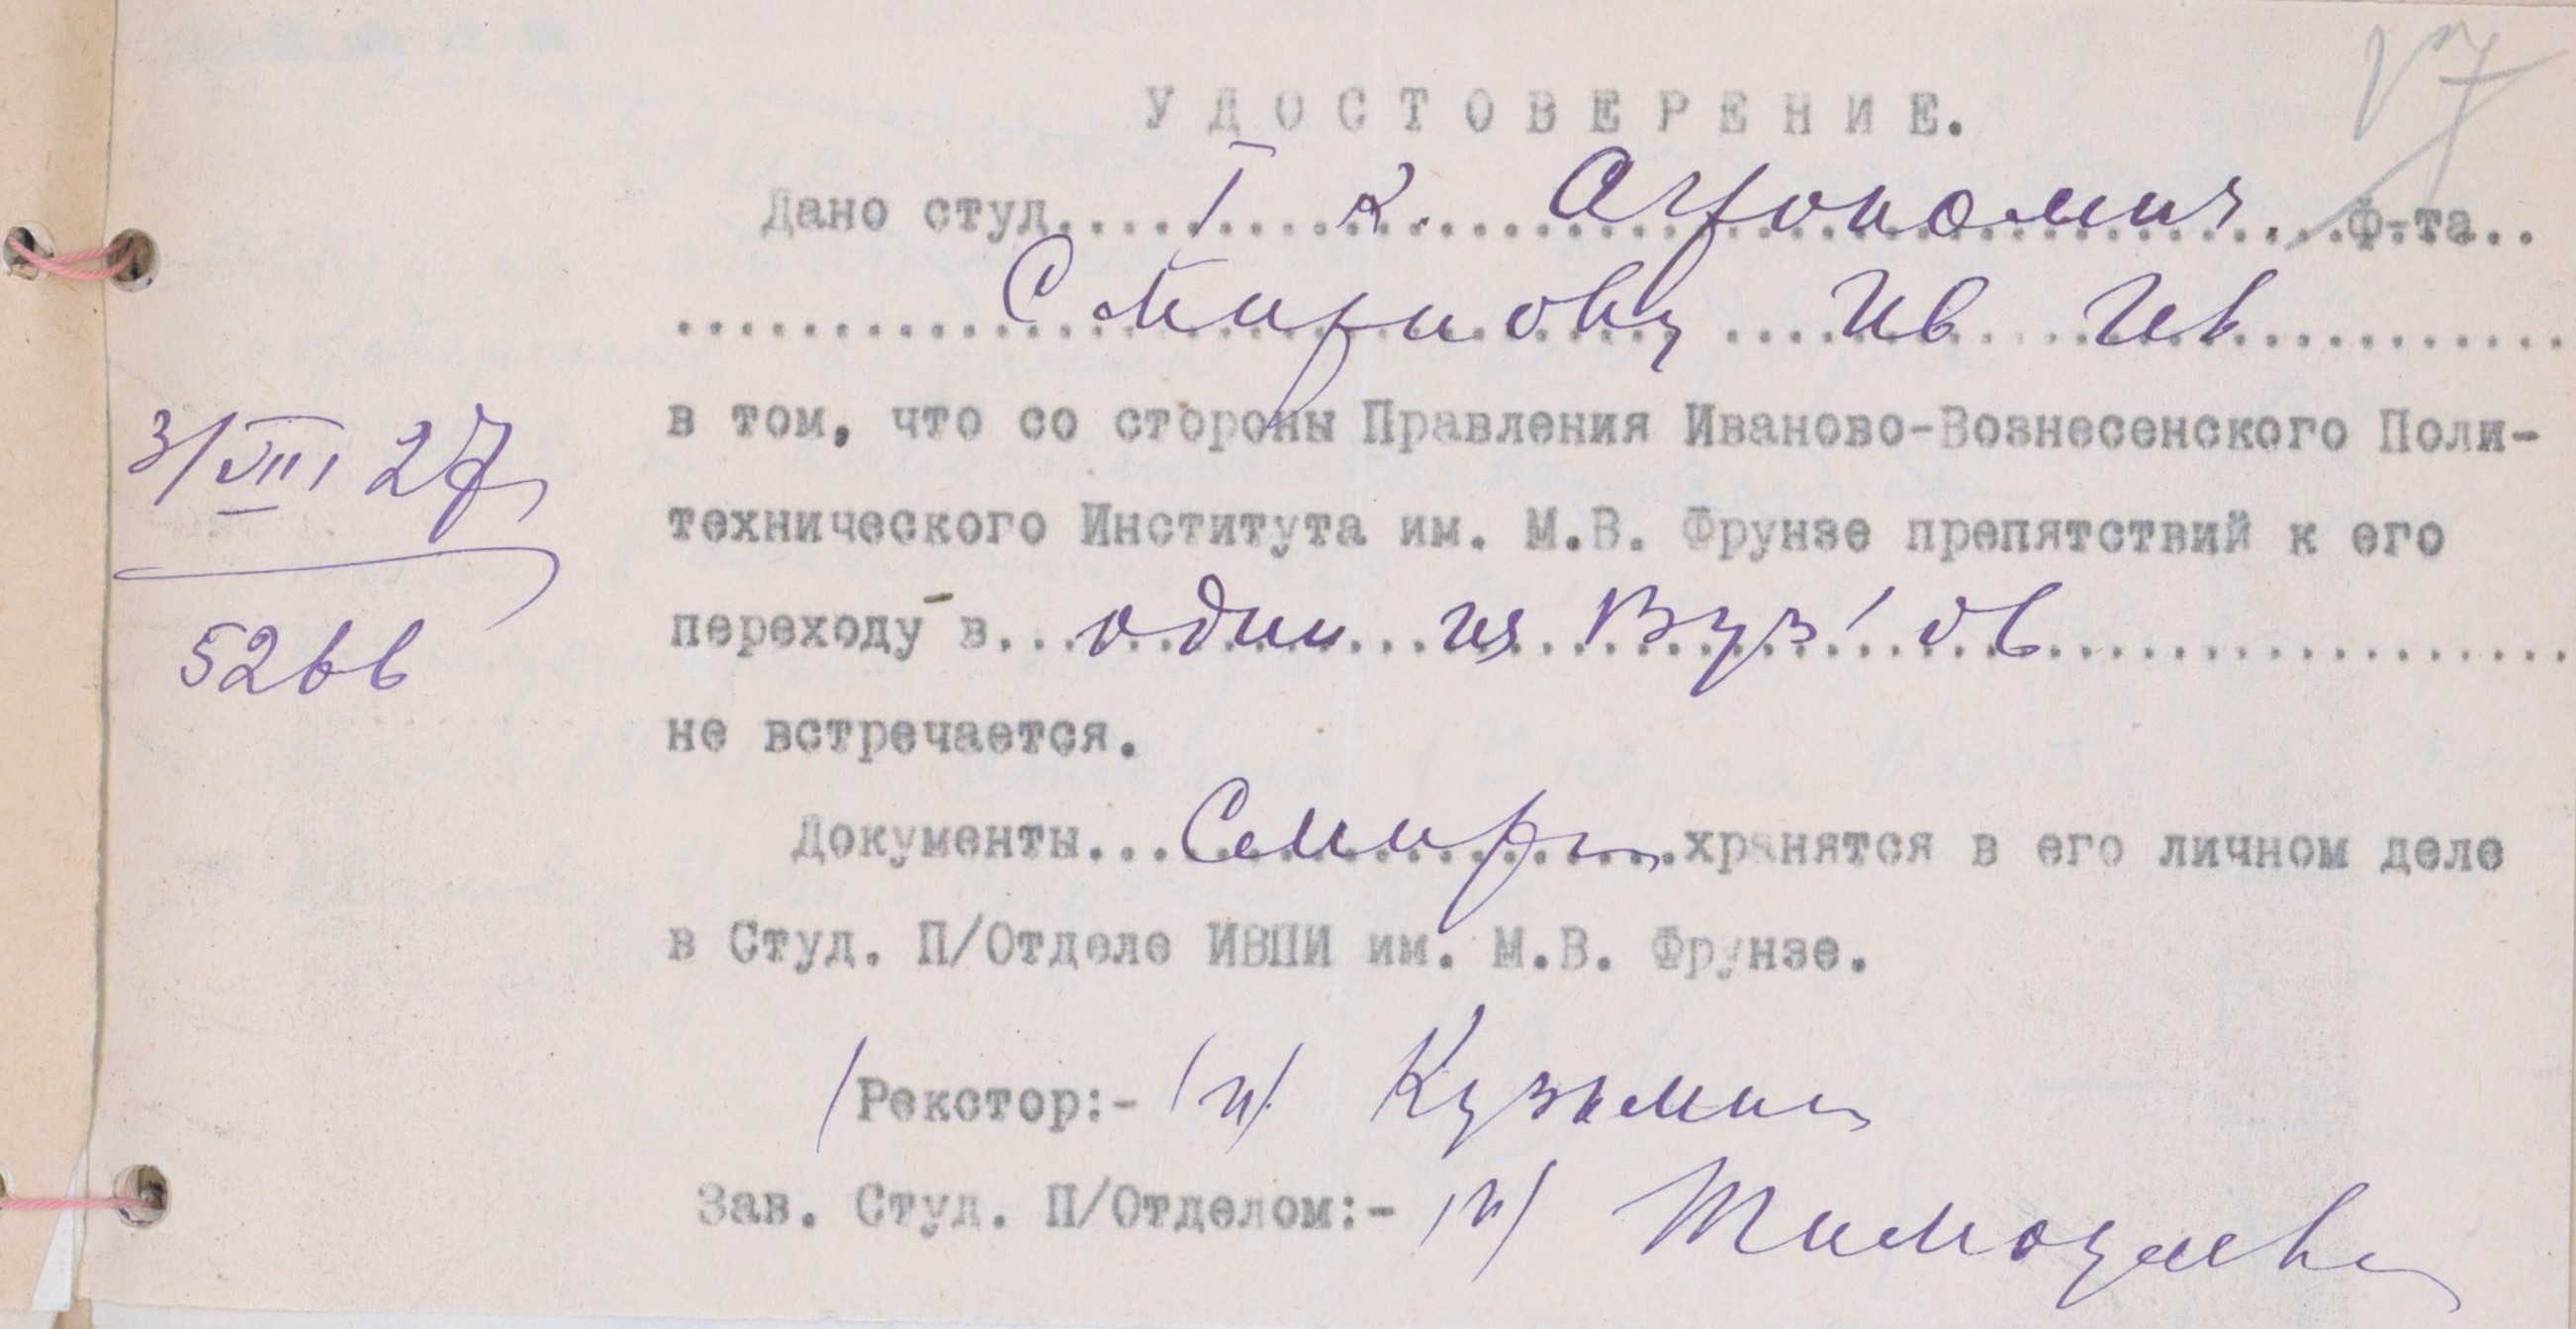 √7
УДОСТОВЕРЕНИЕ.
Дано студ....I к. Агрономич....Ф-та..
Смирнову Ив Ив
в том, что со стороны Правления Иваново-Вознесенского Поли-
3/VIII 27
технического Института им. М.В. Фрунзе препятствий к его
переходу в...один из Вуз'ов
5266
не встречается.
Документы...Смирн...хранятся в его личном деле
в Студ. П/Отделе ИВПИ им. М.В. Фрунзе.
/Рекстор:- /п/ Кузьмин
Зав. Студ. П/Отделом:- /п/